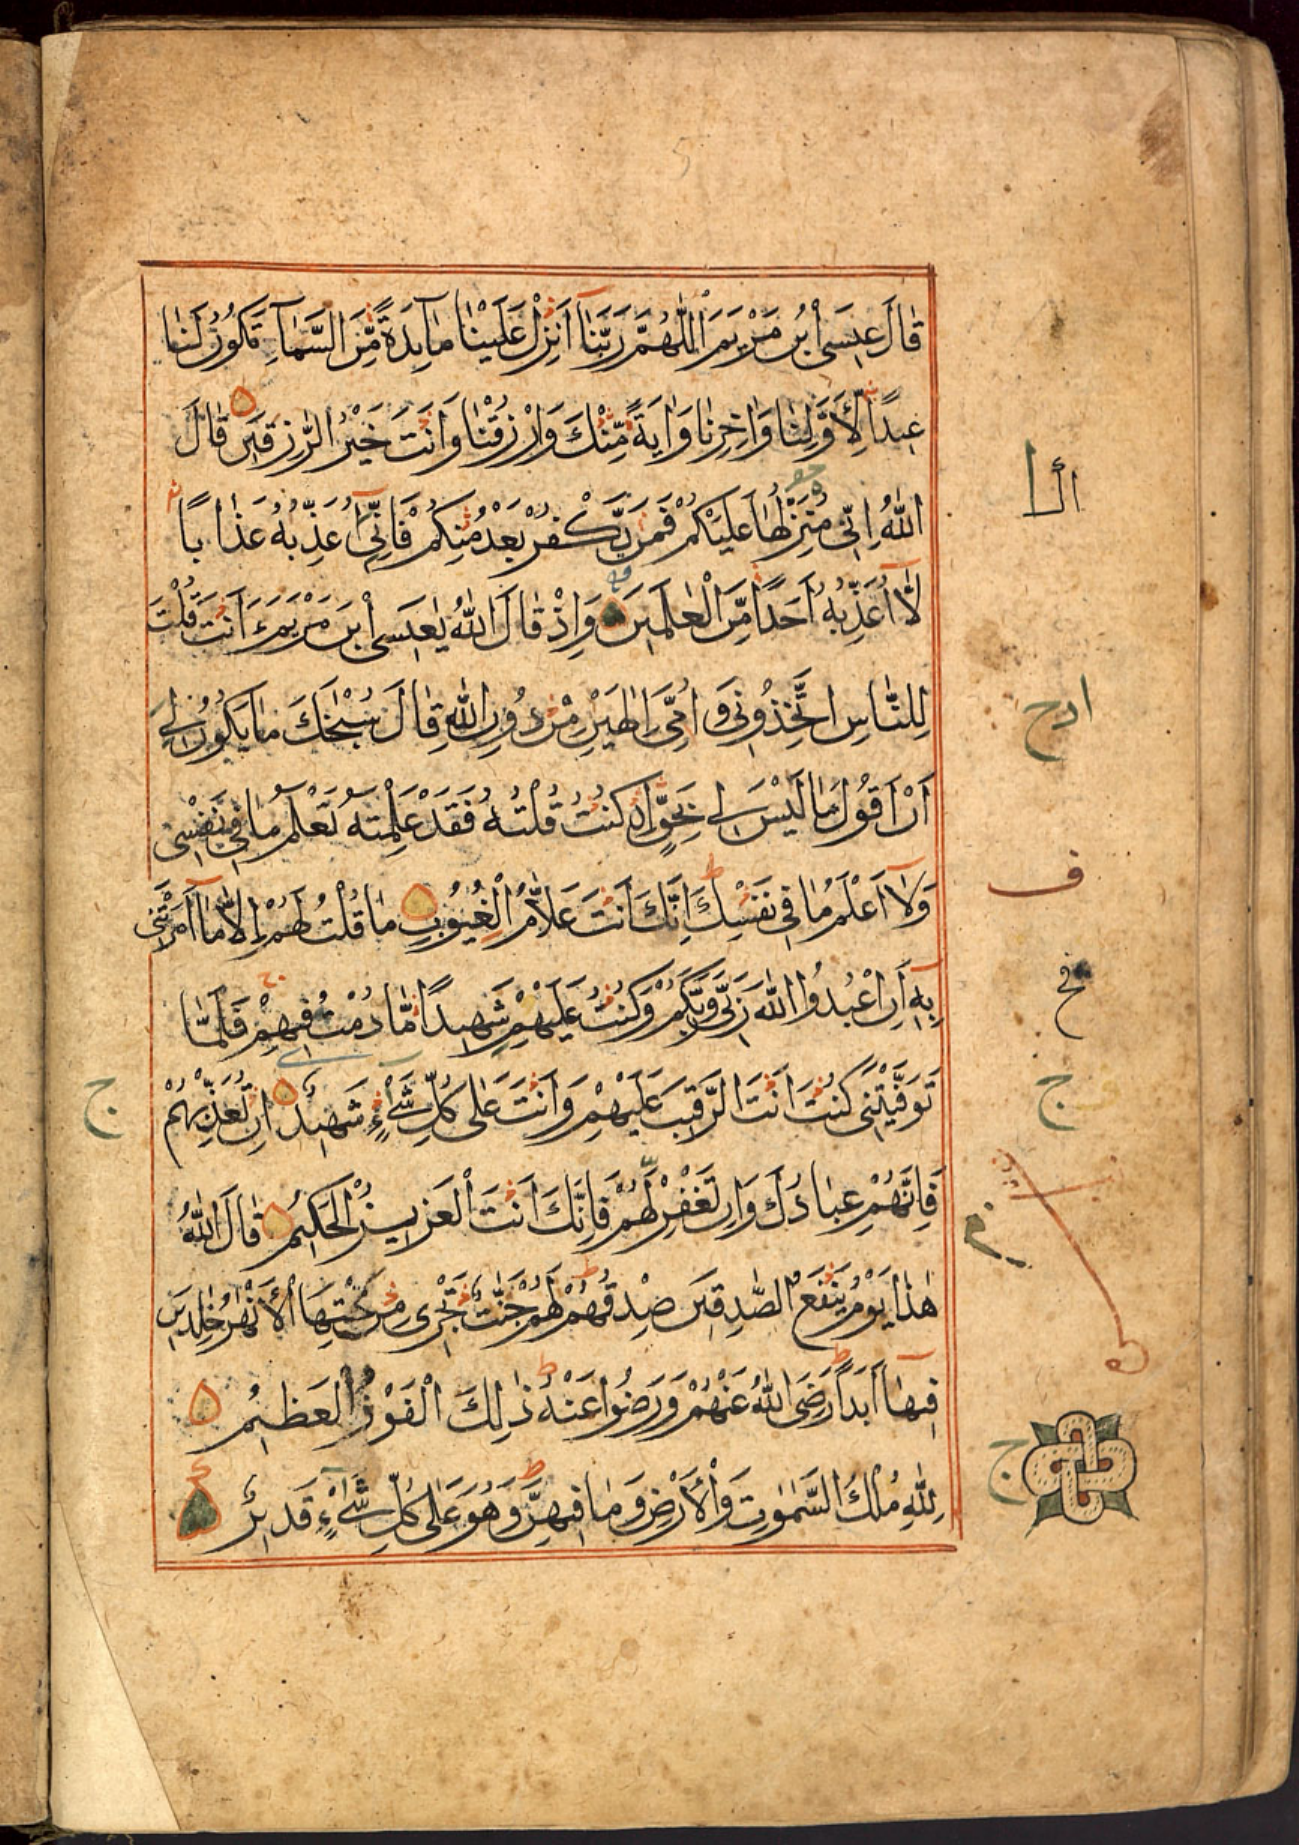 قَالَ عِيسَى ابْنُ مَرْيَمَ اللّٰهُمَّ رَبَّنَا أَنزِلْ عَلَيْنَا مَآئِدَةً مِّنَ السَّمَآءِ تَكُونُ لَنَا
عِيدًا لِّأَوَّلِنَا وَاٰخِرِنَا وَاٰيَةً مِّنْكَ وَارْزُقْنَا وَاَنْتَ خَيْرُ الرّٰزِقِينَ قَالَ
اللّٰهُ اِنِّى مُنَزِّلُهَا عَلَيْكُمْ فَمَنْ يَّكْفُرْ بَعْدُ مِنْكُمْ فَاِنِّىٓ اُعَذِّبُهُ عَذَابًا
لَّآ اُعَذِّبُهُ اَحَدًا مِّنَ الْعٰلَمِينَ وَاِذْ قَالَ اللّٰهُ يٰعِيسَى ابْنَ مَرْيَمَ ءَاَنْتَ قُلْتَ
لِلنَّاسِ اتَّخِذُونِى وَاُمِّىَ اِلٰهَيْنِ مِنْ دُونِ اللّٰهِ قَالَ سُبْحٰنَكَ مَا يَكُونُ لِى
اَنْ اَقُولَ مَا لَيْسَ لِى بِحَقٍّ اِنْ كُنْتُ قُلْتُهُ فَقَدْ عَلِمْتَهُ تَعْلَمُ مَا فِى نَفْسِى
وَلَآ اَعْلَمُ مَا فِى نَفْسِكَ اِنَّكَ اَنْتَ عَلَّامُ الْغُيُوبِ مَا قُلْتُ لَهُمْ اِلَّا مَآ اَمَرْتَنِى
بِهٖٓ اَنِ اعْبُدُوا اللّٰهَ رَبِّى وَرَبَّكُمْ وَكُنْتُ عَلَيْهِمْ شَهِيدًا مَّا دُمْتُ فِيهِمْ فَلَمَّا
تَوَفَّيْتَنِى كُنْتَ اَنْتَ الرَّقِيبَ عَلَيْهِمْ وَاَنْتَ عَلٰى كُلِّ شَىْءٍ شَهِيدٌ اِنْ تُعَذِّبْهُمْ
فَاِنَّهُمْ عِبَادُكَ وَاِنْ تَغْفِرْ لَهُمْ فَاِنَّكَ اَنْتَ الْعَزِيزُ الْحَكِيمُ قَالَ اللّٰهُ
هٰذَا يَوْمُ يَنْفَعُ الصّٰدِقِينَ صِدْقُهُمْ لَهُمْ جَنّٰتٌ تَجْرِى مِنْ تَحْتِهَا الْاَنْهٰرُ خٰلِدِينَ
فِيهَآ اَبَدًا رَضِىَ اللّٰهُ عَنْهُمْ وَرَضُوا عَنْهُ ذٰلِكَ الْفَوْزُ الْعَظِيمُ
لِلّٰهِ مُلْكُ السَّمٰوٰتِ وَالْاَرْضِ وَمَا فِيهِنَّ وَهُوَ عَلٰى كُلِّ شَىْءٍ قَدِيرٌ
ف
ج
ج
ج